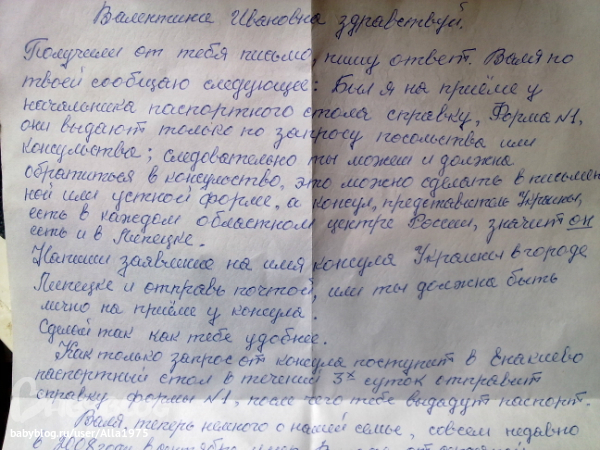 Валентина Ивановна здравствуй.
Получили от тебя письмо, пишу ответ. Валя по
твоей сообщаю следующее: Был я на приёме у
начальника паспортного стола справку, Форма №1,
они выдают только по запросу посольства или
консульства; следовательно ты можеш и должна
обратиться в консульство, это можно сделать в письмен
ной или устной форме, а консул, представитель Украины,
есть в каждом областном центре России, значит он
есть и в Липецке.
Напиши заявление на имя консула Украины в городе
Липецке и отправь почтой, или ты должна быть
лично на приёме у консула.
Сделай так как тебе удобнее.
Как только запрос от консула поступит в Енакиево
паспортный стол в течении 3х суток отправит
справку формы №1, после чего тебе выдадут паспорт.
Валя, теперь немного о нашей семье, совсем недавно
в 2008 году
babyblog.ru/user/Alla1975